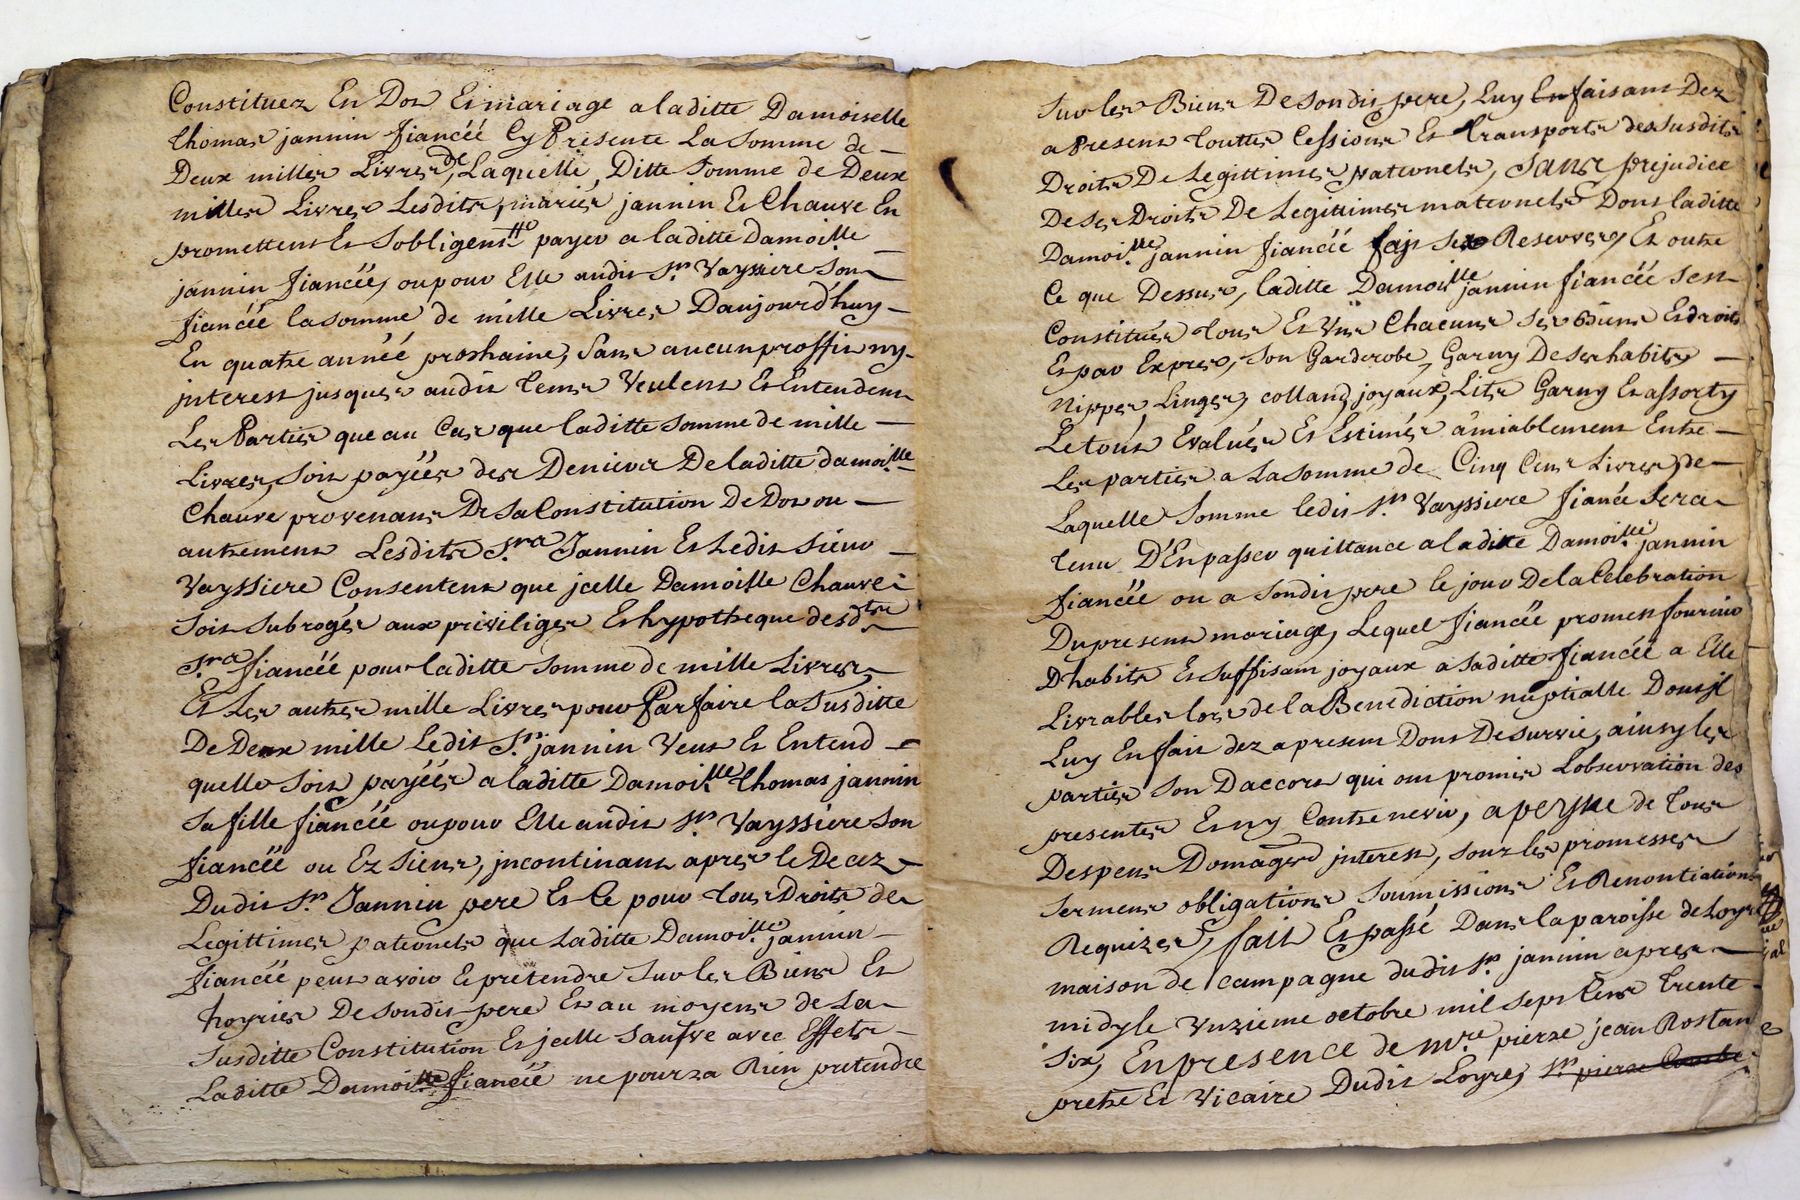 Constituez En Dot Et mariage a laditte Damoiselle
thomas jannin fiancéé Cy Présente La Somme de —
Deux milles Livres, de Laquelle, Ditte Somme de Deux
milles Livres Lesdits mariés jannin Et Chauve En
promettent Et Sobligent payer a laditte Damoille —
jannin fiancéé, ou pour Elle audit Sr. Vayssiere Son
fiancéé la somme de mille Livres Daujourd'huy —
En quatre annéé prochaine, Sans aucun proffit ny-
jnterest jusques audit tems Veulent Et Entendent
Les Parties que au Cas que laditte Somme de mille —
Livres, Soit payéés des Deniers De laditte damoille
Chauve provenant De Sa Constitution De Dot ou —
autrement Lesdits Srs Jannin Et Ledit Sieur —
Vayssiere Consentent que jcelle Damoille Chauve
Soit Subrogés aux priviliges Et hypotheque desdts
Srs fiancéé pour laditte Somme de mille Livres,
Et Les autres mille Livres pour Parfaire la Susditte
De Deux mille Ledit Sr. jannin Veut Et Entend —
quelle Soit payéés a laditte Damoille thomas jannin
Sa fille fiancéé ou pour Elle audit Sr Vayssiére Son
fiancéé ou Ez Siens, jncontinant apres le Decez
Dudit Sr Jannin pere Et Ce pour tous Droits de
Legittimes paternels que Laditte Damoille jannin —
fiancéé peut avoir Et pretendre Sur les Biens Et
hoyries De Sondit pere Et au moyens de La
Susditte Constitution Et jcelle Saufve avec Effets —
Laditte Damoille fiancéé ne pourra Rien pretendre
Sur les Biens De Sondit pere, Luy En faisant Dez
a Present touttes Cessions Et transports des Susdits
Droits De Legittimes paternels, Sans prejudice
De Ses Droits De Legittimes maternels Dont laditte
Damoille jannin fiancéé fait Reserves, Et outre
Ce que Dessus, laditte Damoille jannin fiancéé Sest
Constitués tous Et Uns Chacuns Ses Biens Et droits
Et par Expres, Son Garderobe, Garny De Ses habits —
Nippes, Linges, colland, joyaux, Lits Garny Et assorty
Le tout Evalués Et Estimés amiablement Entre —
Les parties a La somme de Cinq Cens Livres, de —
Laquelle Somme ledit Sr Vayssiere fiancé Sera
tenu D'En passer quittance a laditte Damoille jannin
fiancéé ou a Sondit pere le jour De la Celebration
Du present mariage, Lequel fiancéé promet fournir
D'habits Et Suffisam joyaux a Saditte fiancéé a Elle
Livrables lors de la Benediction nuptialle Dont jl
Luy En fait dez a present Dont De Survie, ainsy les
parties Son Daccort qui ont promis Lobservation des
presentes Et ny Contrenevir, a peyne de tous
Despens Domages jnterest, Sous les promesses
Sermens obligations Soumissions Et Renontiations
Requizes, fait Et passé Dans la paroisse de Loyre
maison de campagne dudit Sr. jannin apres —
midy le Vnzieme octobre mil sept Cens trente
Six, En presence de mre. pierre jean Rostan
pretre Et Vicaire Dudit Loyre, Sr pierre Combe